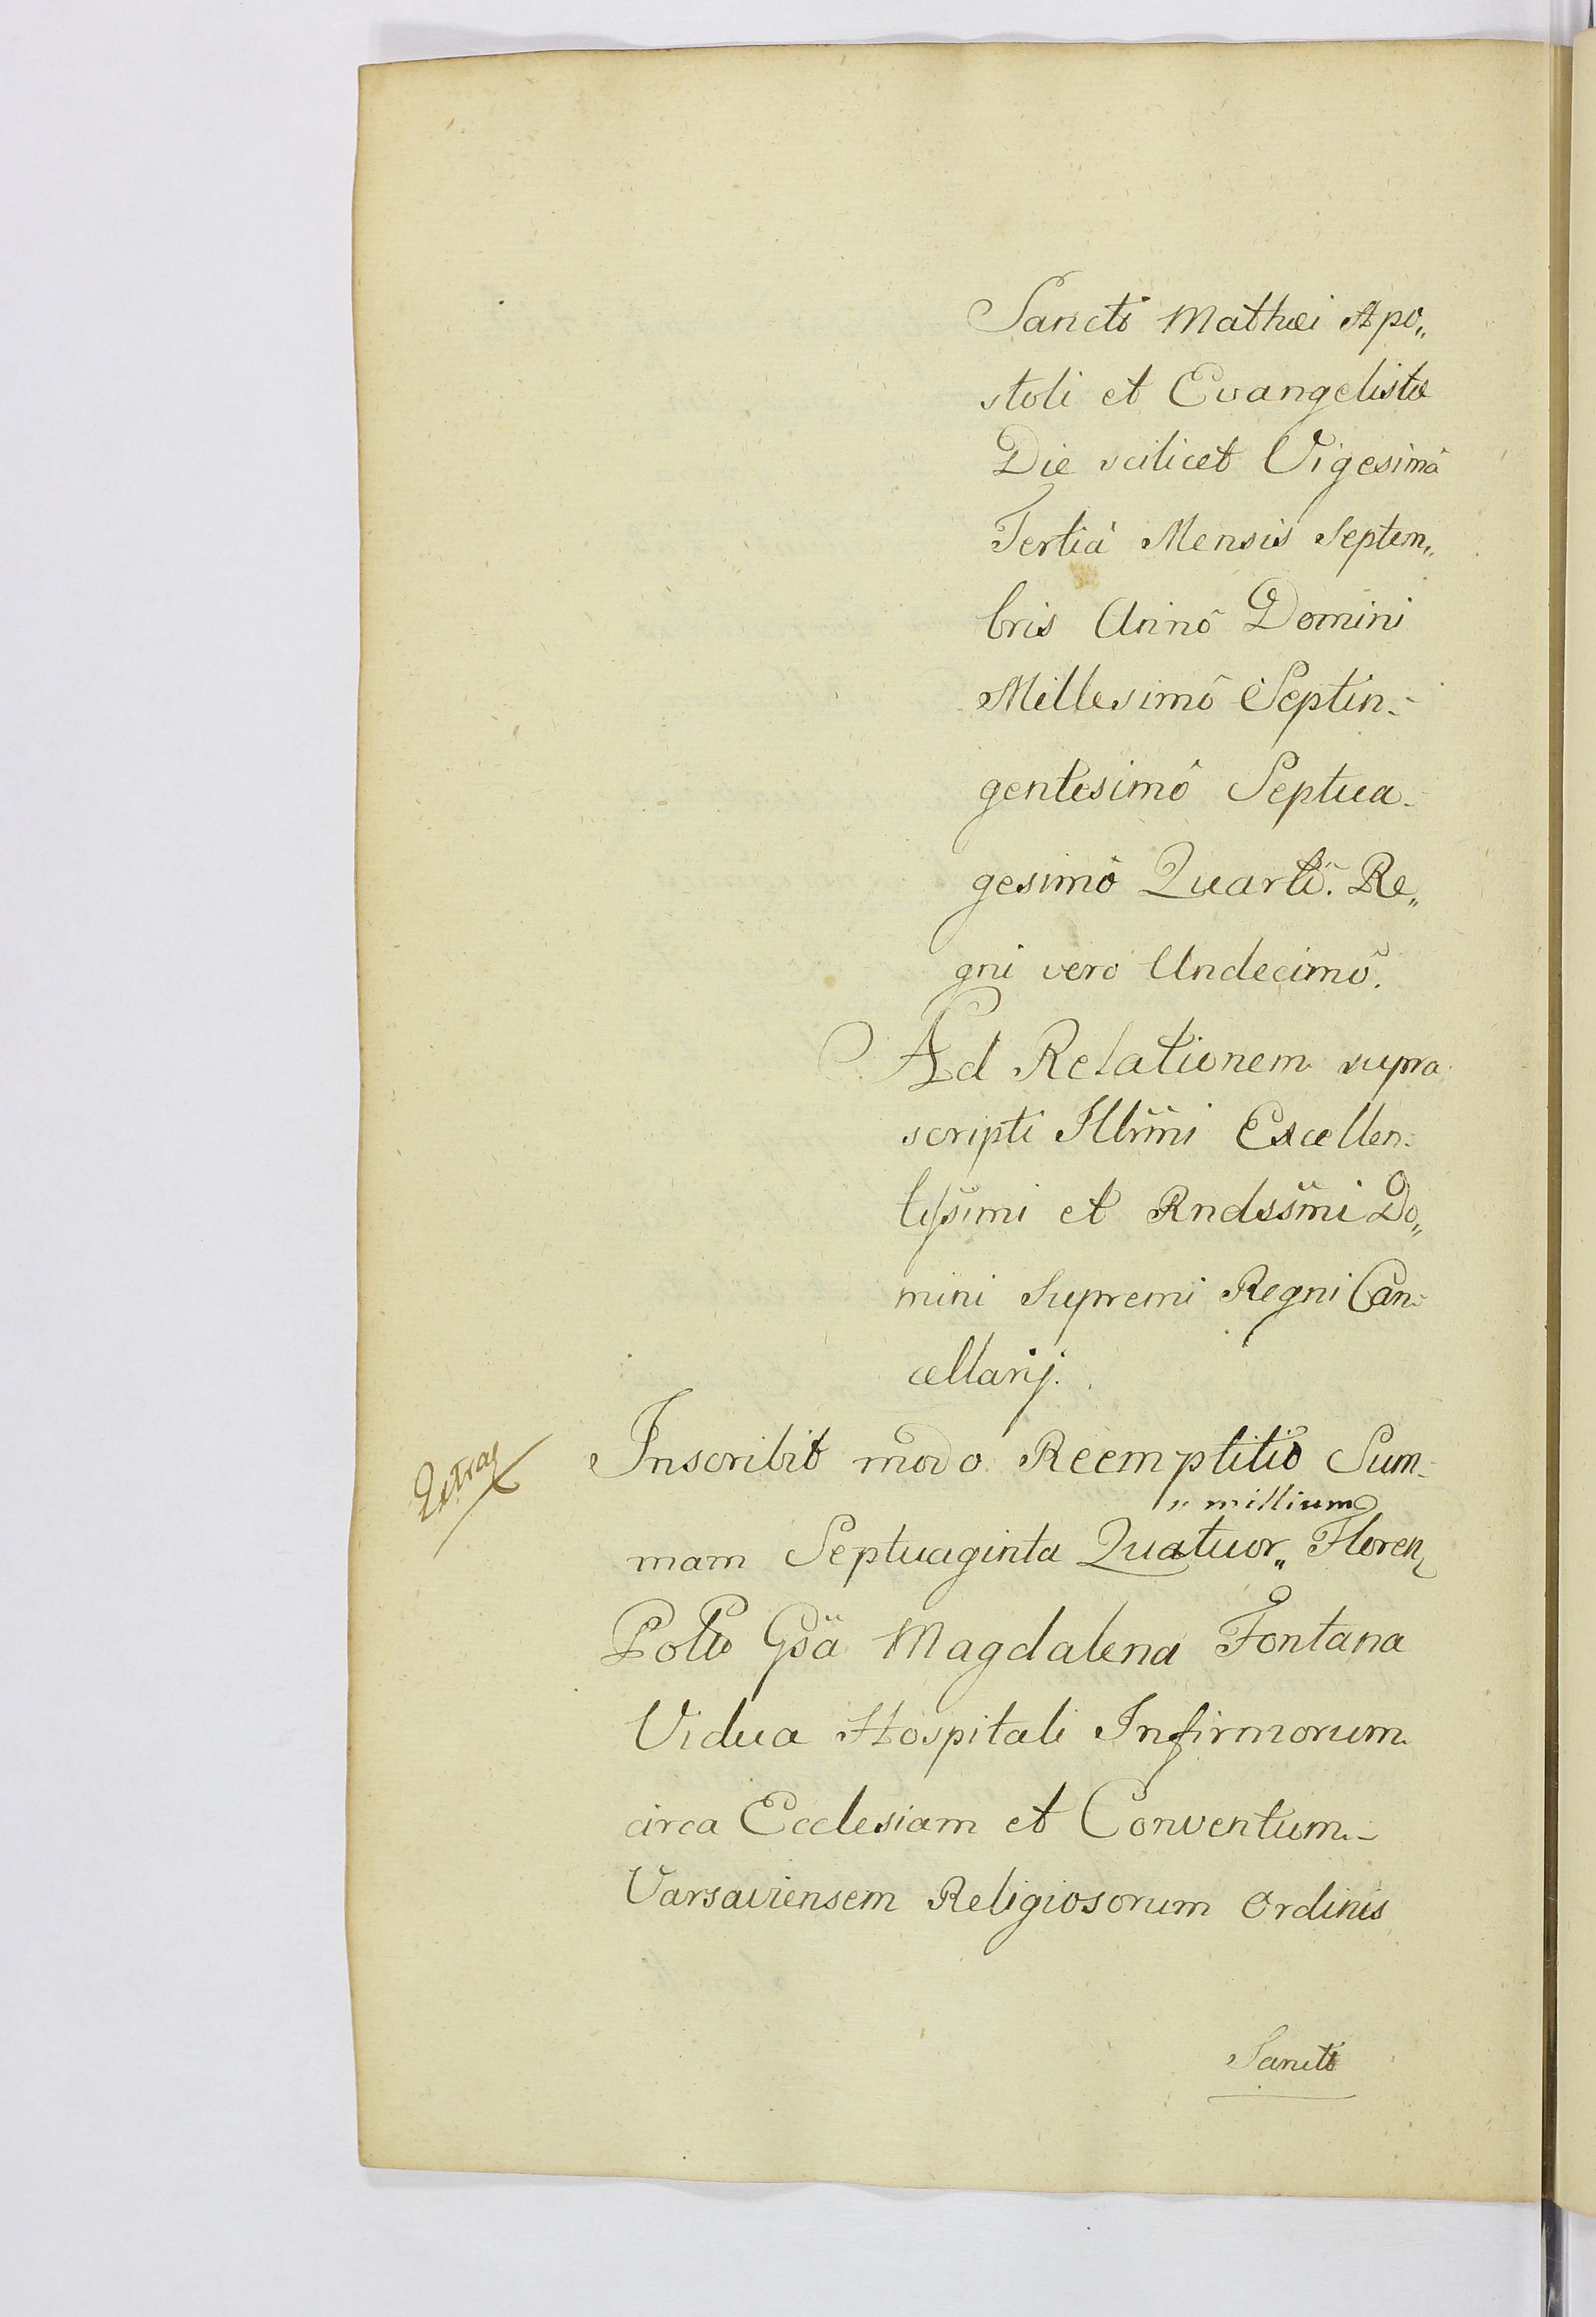 Sancti Mathæi Apo„
stoli et Evangelistæ
Die scilicet Vigesimâ
Tertiâ Mensis Septem„
bris Annô Domini
Millesimô Septin-
gentesimô Septua-
gesimô Quartô. Re„
gni vero Undecimô.
Ad Relationem supra
scripti Illmi Excellen-
tissimi et Rndssmi Do„
mini Supremi Regni Can-
cellarij.
Extrag
Inscribit modo Reemptitio Sum-
„ millium
mam Septuaginta Quatuor„ Floren
Polł Gsa Magdalena Fontana
Vidua Hospitali Infirmorum
circa Ecclesiam et Conventum-
Varsaviensem Religiosorum Ordinis
Sancti